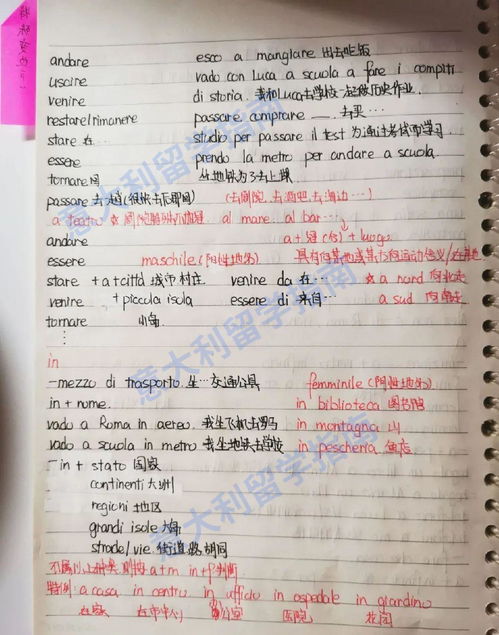 andare esco a mangiare 出去吃饭
uscire vado con Luca a scuola a fare i compiti
venire di storia. 我和Luca去学校一起做历史作业.
restare/rimanere passare comprare 去买…
stare 在… studio per passare il test 为通过考试而学习
essere prendo la metro per andare a scuola.
tornare 回 坐地铁为了去上课
passare 去过(很快去后那回) (去剧院.去酒吧.去海边…)
a teatro al mare. al bar…
andare a+冠(仿)+luogo
essere maschile
stare +a+città 城市村庄 venire da 在… a nord 向北走
venire +piccola isola essere di 来自… a sud 向南走
tornare 小岛
in
—mezzo di trasporto. 坐…交通公具 femminile
in + nome. in biblioteca 图书馆
vado a Roma in aereo. 我坐飞机去罗马 in montagna 山
vado a scuola in metro 我坐地铁去学校 in pescheria 鱼店
—in + stato 国家
continenti 大洲
regioni 地区
grandi isole 大岛
strade/vie. 街道.路.胡同
特例: a casa in centro in ufficio in ospedale in giardino
在家 在市中心 办公室 医院 花园
意大利留学指南
意大利留学指南
意大利留学指南